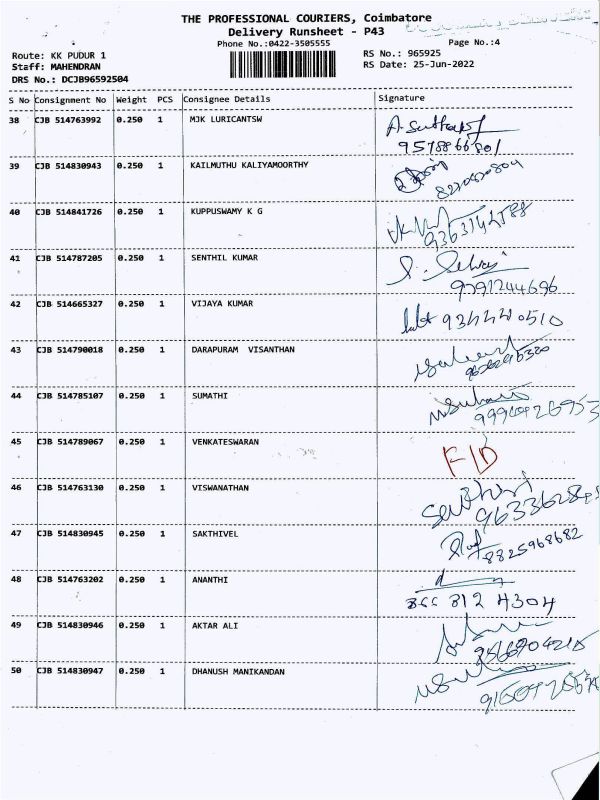 THE PROFESSIONAL COURIERS, Coimbatore
Delivery Runsheet - P43
Phone No.:0422-3505555
Page No.:4
Route: KK PUDUR 1
RS No.: 965925
Staff: MAHENDRAN
RS Date: 25-Jun-2022
DRS No.: DCJB96592504
S No Consignment No Weight PCS Consignee Details Signature
38 CJB 514763992 0.250 1 MJK LURICANTSW
9578866801
39 CJB 514830943 0.250 1 KAILMUTHU KALIYAMOORTHY
40 CJB 514841726 0.250 1 KUPPUSWAMY K G
41 CJB 514787205 0.250 1 SENTHIL KUMAR
9791244696
42 CJB 514665327 0.250 1 VIJAYA KUMAR
43 CJB 514790018 0.250 1 DARAPURAM VISANTHAN
44 CJB 514785107 0.250 1 SUMATHI
45 CJB 514789067 0.250 1 VENKATESWARAN
F/D
46 CJB 514763130 0.250 1 VISWANATHAN
47 CJB 514830945 0.250 1 SAKTHIVEL
8825968682
48 CJB 514763202 0.250 1 ANANTHI
866 812 4304
49 CJB 514830946 0.250 1 AKTAR ALI
50 CJB 514830947 0.250 1 DHANUSH MANIKANDAN